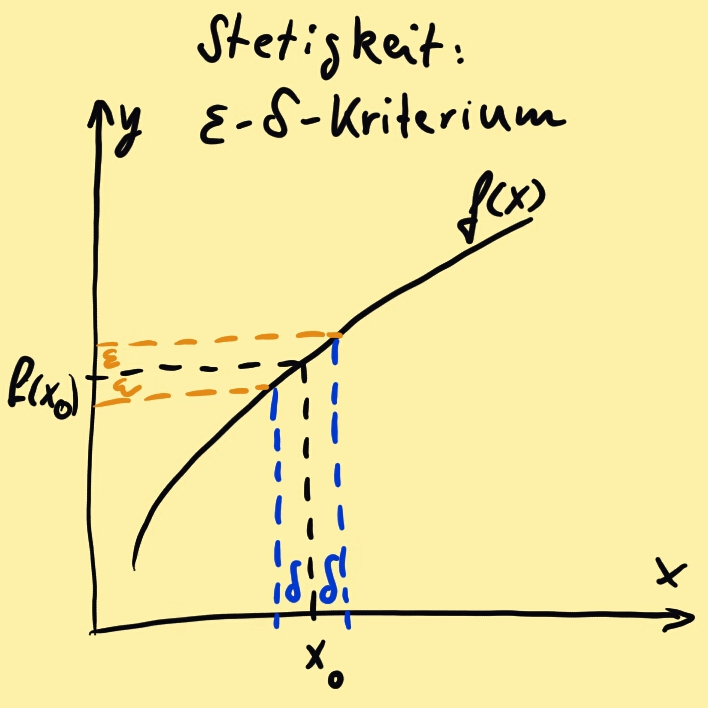 Stetigkeit:
ε-δ-Kriterium
y
f(x)
ε
f(x₀)
ε
δ δ
x
x₀